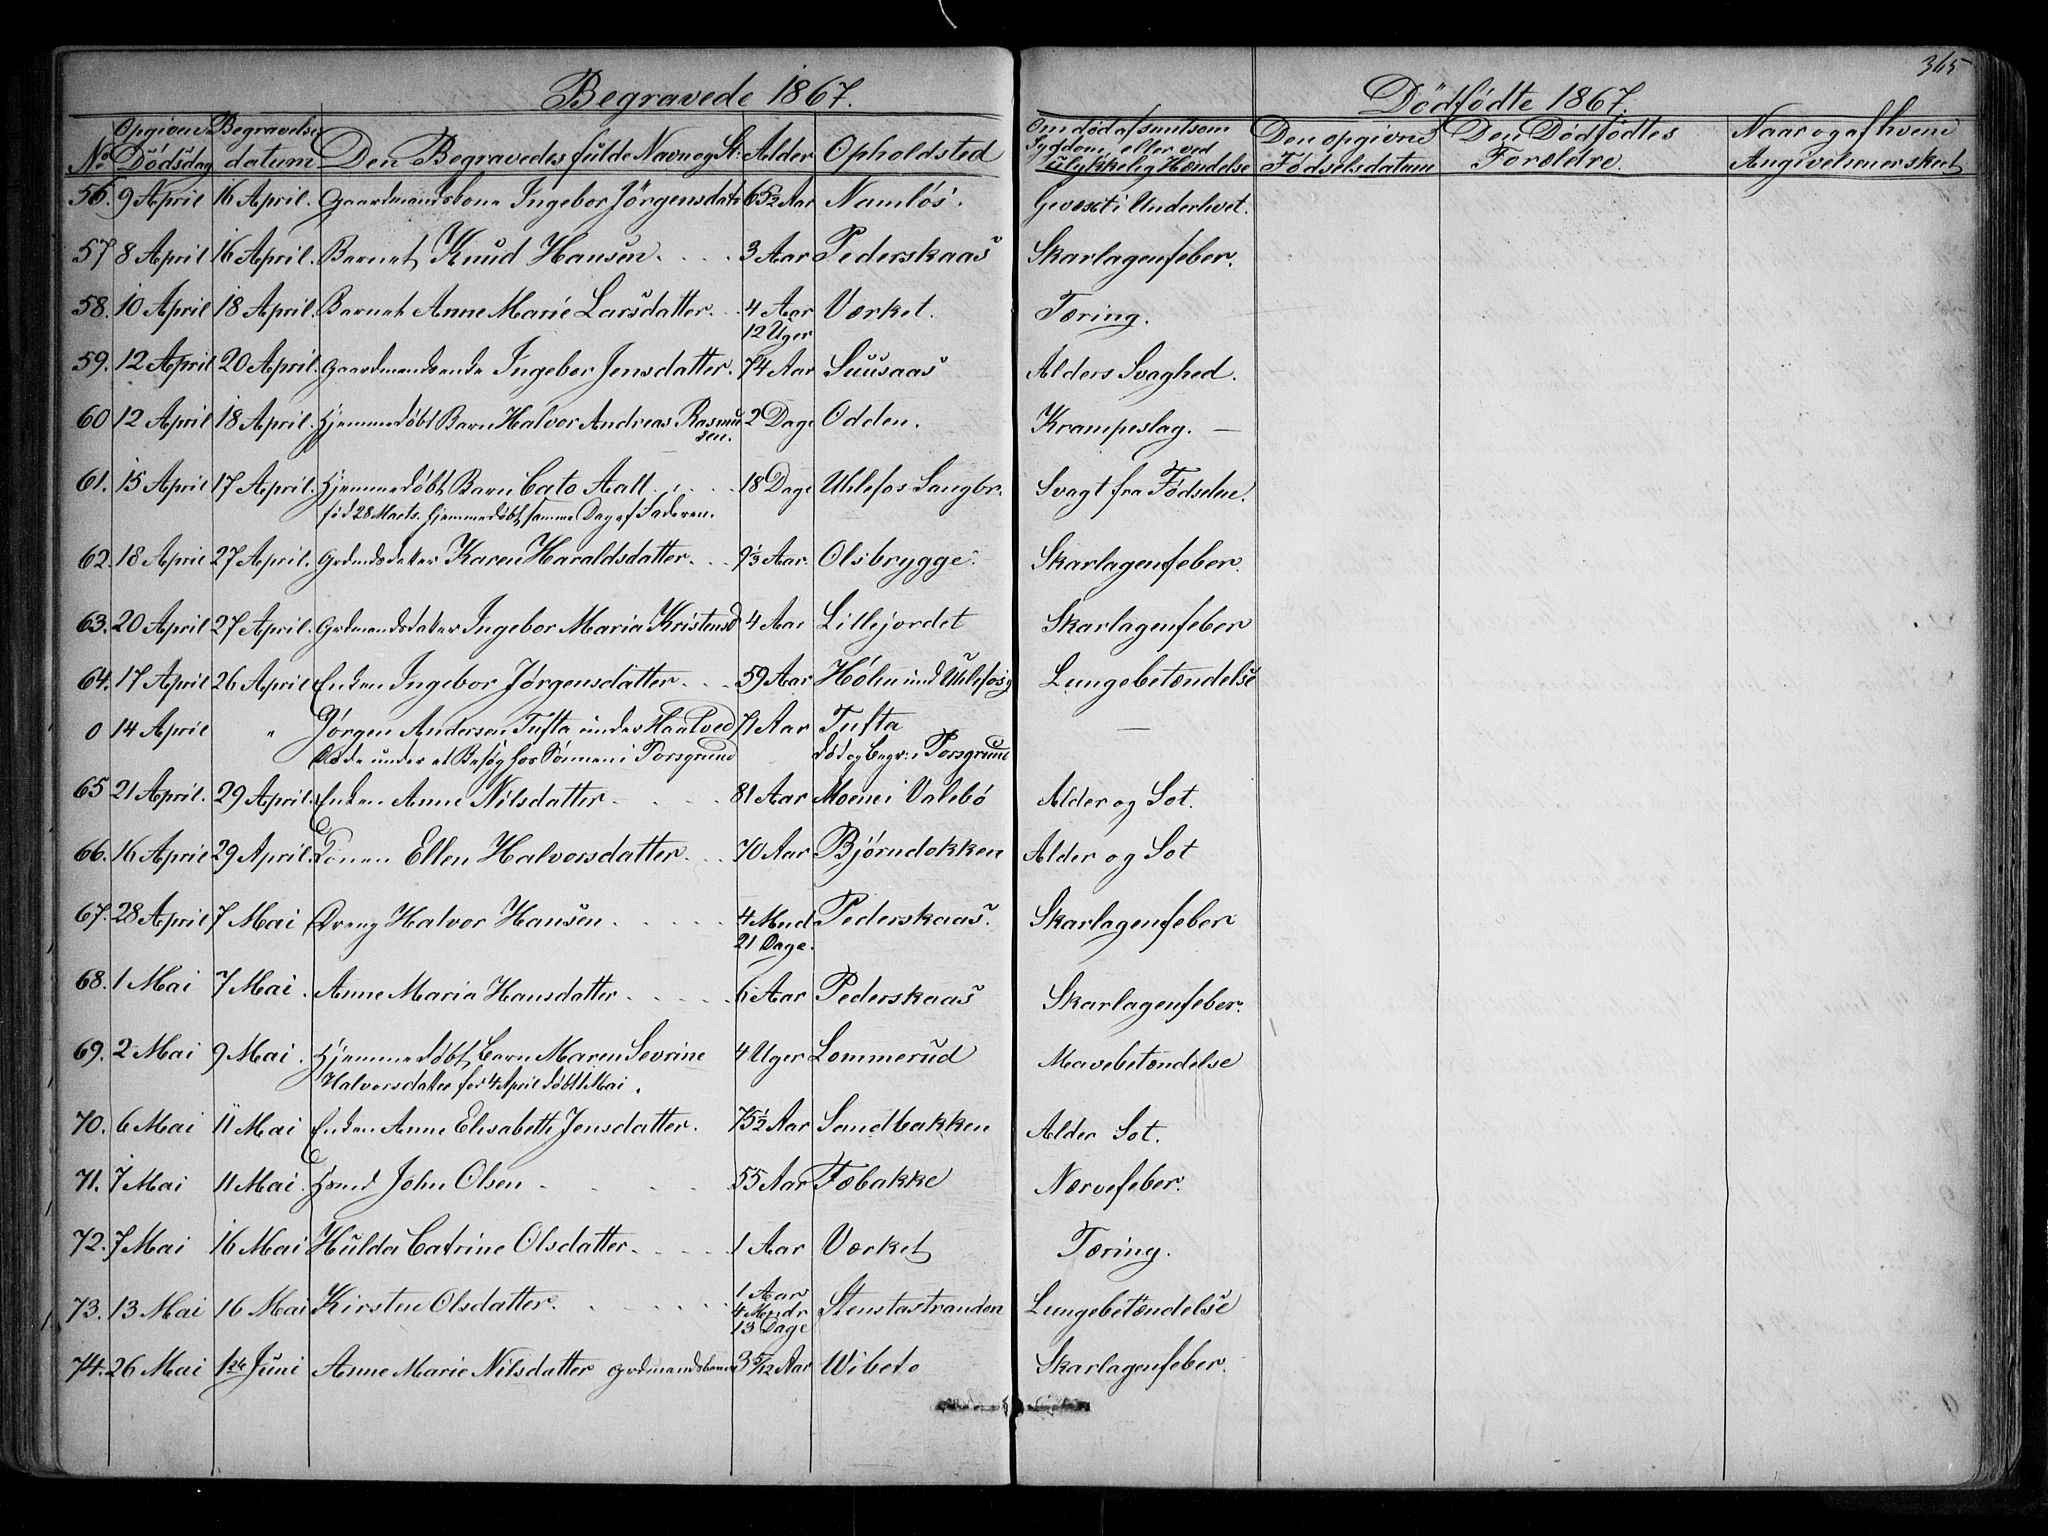 365
Begravede 1867.
Dödfödte 1867.
No Opgiven Dödsdag Begravelse datum Den Begravedes fulde Navn og St: Alder Opholdsted Om död af smitsom Sygdom, eller ved ulykkelig Hændelse Den opgivne Födselsdatum Den Dödfödtes Forældre. Naar og af hvem Angivelsen er skeet
56. 9 April 16 April. Gaardmandskone Ingebor Jörgensdatr 65½ Aar Namlös. Gevæxt i Underlivet.
57 8 April 16 April. Barnet Knud Hansen. 3 Aar Pederskaas Skarlagenfeber.
58. 10 April 18 April. Barnet Anne Marie Larsdatter. 4 Aar 12 Uger Værket. Tæring.
59. 12 April 20 April. Gaardmandsenke Ingebor Jensdatter. 74 Aar Suusaas Alders Svaghed.
60 12 April 18 April. Hjemmedöbt Barn Halvor Andreas Rasmusen. 2 Dage Odden. Krampeslag. —
61. 15 April 17 April. Hjemmedöbt Barn Cato Aall. 18 Dage Uhlefos Saugbr.  Svagt fra Födselen.
föd 28 Marts. hjemmedöbt samme Dag af Faderen.
62. 18 April 27 April. Grdmdsdatter Karen Haraldsdatter. 9⅓ Aar. Olsbrygge. Skarlagenfeber.
63. 20 April 27 April. Grdmandsdatter Ingebor Maria Kristensd 4 Aar Lillejordet Skarlagenfeber
64. 17 April 26 April Enken Ingebor Jörgensdatter. 59 Aar Holm und Uhlefos Lungebetændelse
0 14 April " Jörgen Andersen Tufta under Haatved 71 Aar Tufta —
Döde under et Besög hos Sönnen i Porsgrund död og begr: i Porsgrund
65 21 April. 29 April. Enken Anne Nilsdatter. 81 Aar Moene i Valebö Alder og Sot.
66. 16 April 29 April. Konen Ellen Halvorsdatter. 70 Aar Björndokken Alder og Sot
67. 28 April 7 Mai Dreng Halvor Hansen. 4 Mnd 21 Dage. Pederskaas. Skarlagenfeber
68. 1 Mai 7 Mai. Anne Maria Hansdatter. 6 Aar Pederskaas Skarlagenfeber.
69. 2 Mai 9 Mai. Hjemmedöbt Barn Maren Sevrine 4 Uger Lommerud Mavebetændelse
Halvorsdatter för 4 April döbt 1 Mai.
70. 6 Mai 11 Mai Enken Anne Elisabeth Jensdatter. 75½ Aar Sandbakken Alder Sot.
71. 7 Mai 11 Mai. Hmd John Olsen 55 Aar Fæbakke Nærvefeber.
72. 7 Mai 16 Mai Hulda Catrine Olsdatter. 1 Aar Værket Tæring.
73. 13 Mai 16 Mai Kirsten Olsdatter. 1 Aar 4 Mndr 13 Dage Stenstastranden Lungebetændelse
74. 26 Mai 1ste Juni Anne Marie Nilsdatter Grdmandsbarn 3 5/12 Aar Wibeto Skarlagenfeber.